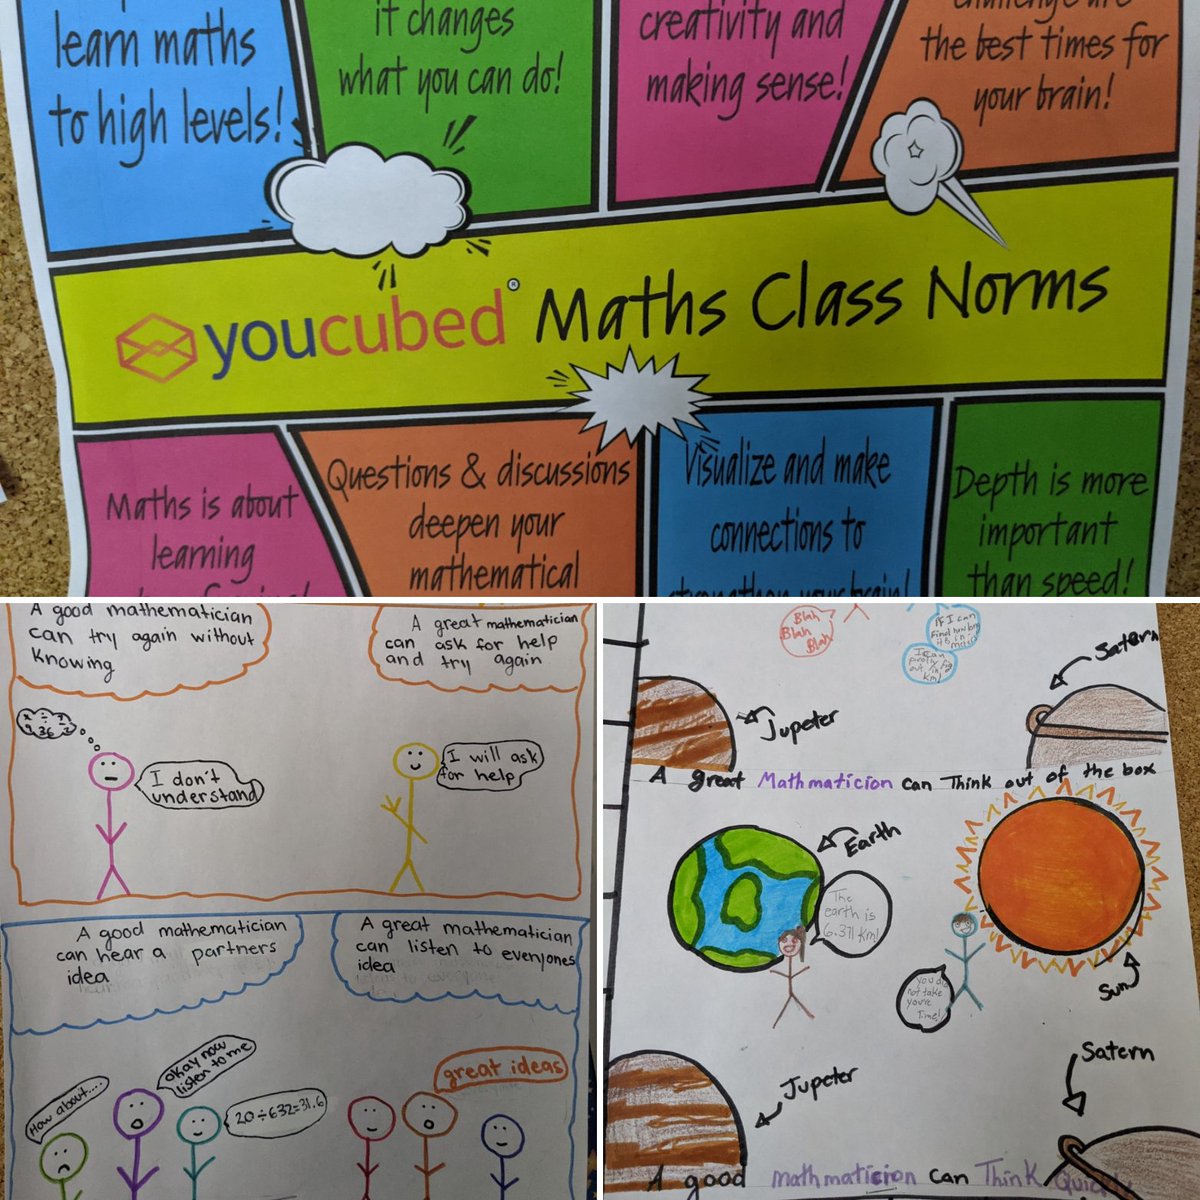 learn maths
to high levels!
it changes
what you can do!
creativity and
making sense!
challenge are
the best times for
your brain!
youcubed® Maths Class Norms
Maths is about
learning
Questions & discussions
deepen your
mathematical
Visualize and make
connections to
strengthen your brain!
Depth is more
important
than speed!
A good mathematician
can try again without
knowing
A great mathematician
can ask for help
and try again
I don't
understand
I will ask
for help
A good mathematician
can hear a partners
idea
A great mathematician
can listen to everyones
idea
How about....
okay now
listen to me
20÷632=31.6
great ideas
Blah
Blah
Blah
If I can
Find how big
it is in
I can
out in
km!
Jupeter
Satern
A great Mathmaticion can Think out of the box
Earth
The
earth is
6.371 km!
You did
not take
you're
Time!
Sun
Jupeter
Satern
A good mathmaticion can Think Quickly